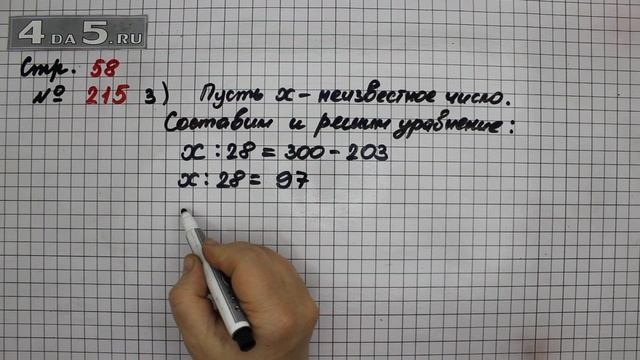 4DA5.RU
Стр. 58
№ 215 3) Пусть x - неизвестное число.
Составим и решим уравнение:
x : 28 = 300 - 203
x : 28 = 97